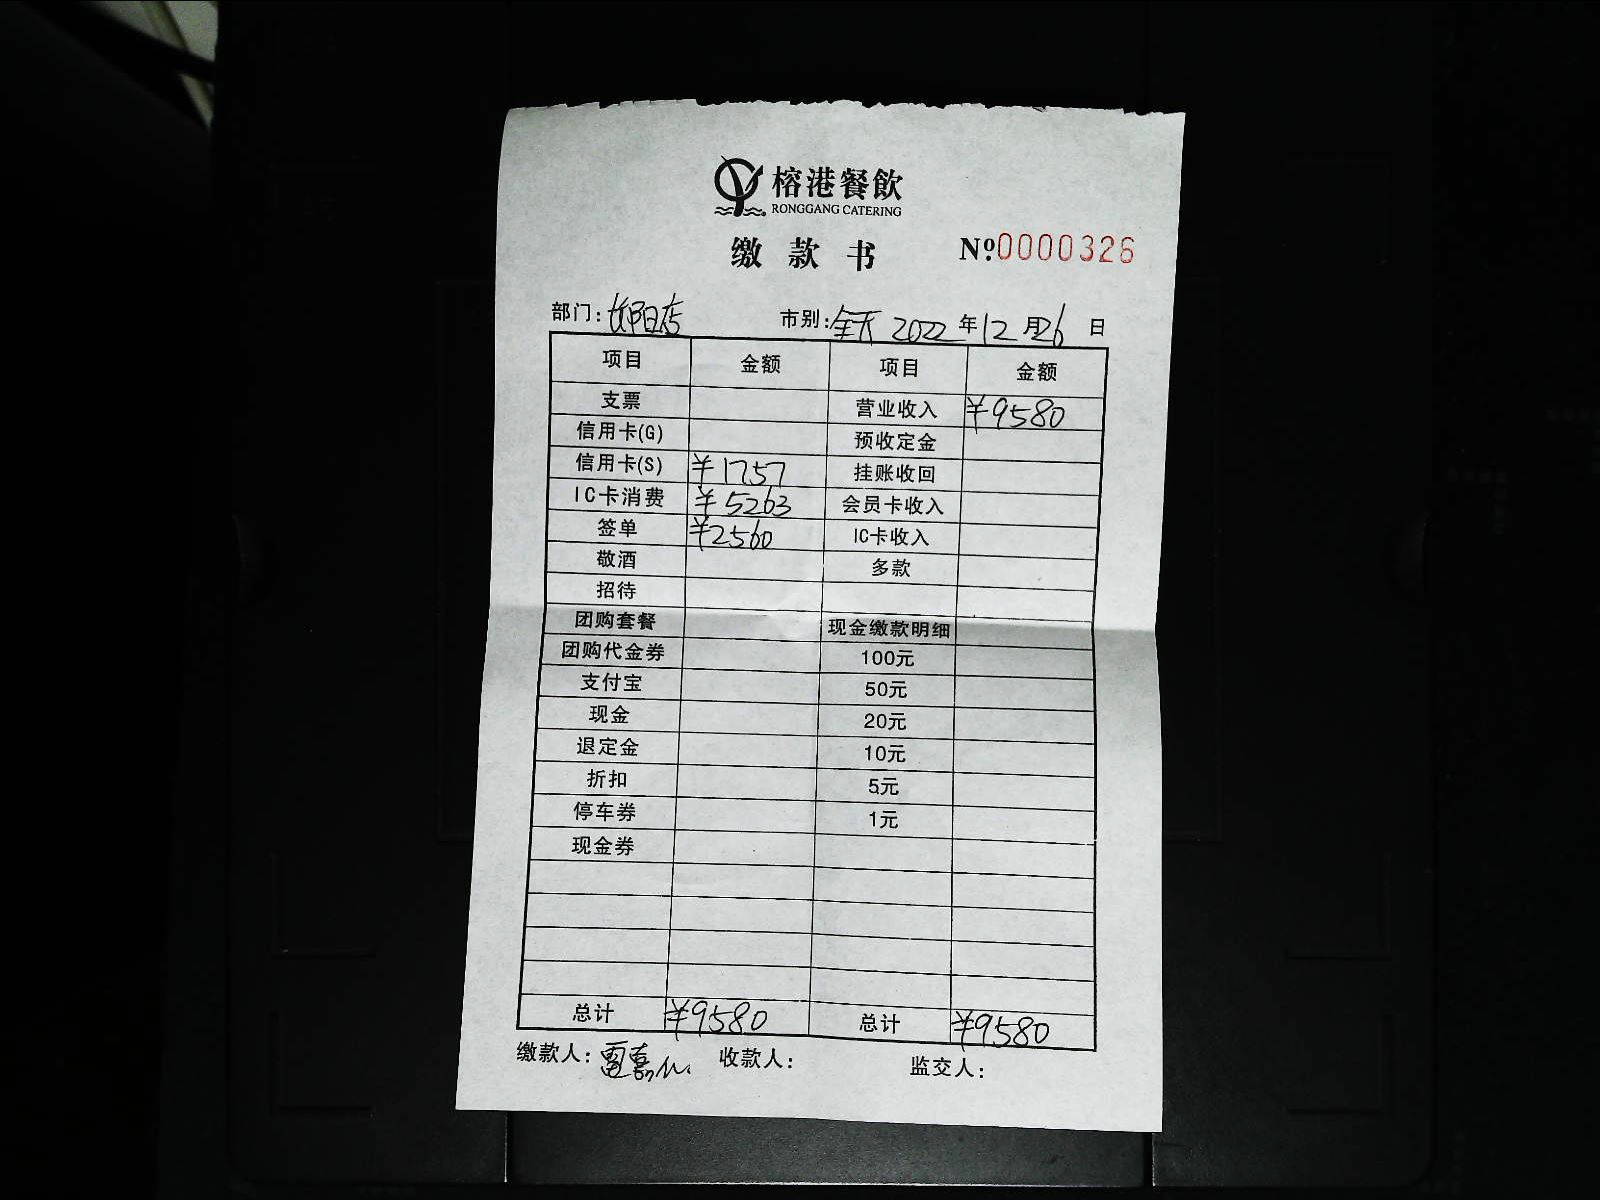 榕港餐飲
RONGGANG CATERING
缴款书 №0000326
部门: 市别:全天 2022年12月26日
项目 金额 项目 金额
支票 营业收入 ¥9580
信用卡(G) 预收定金
信用卡(S) ¥1757 挂账收回
IC卡消费 ¥5263 会员卡收入
签单 ¥2560 IC卡收入
敬酒 多款
招待
团购套餐 现金缴款明细
团购代金券 100元
支付宝 50元
现金 20元
退定金 10元
折扣 5元
停车券 1元
现金券
总计 ¥9580 总计 ¥9580
缴款人: 收款人: 监交人: